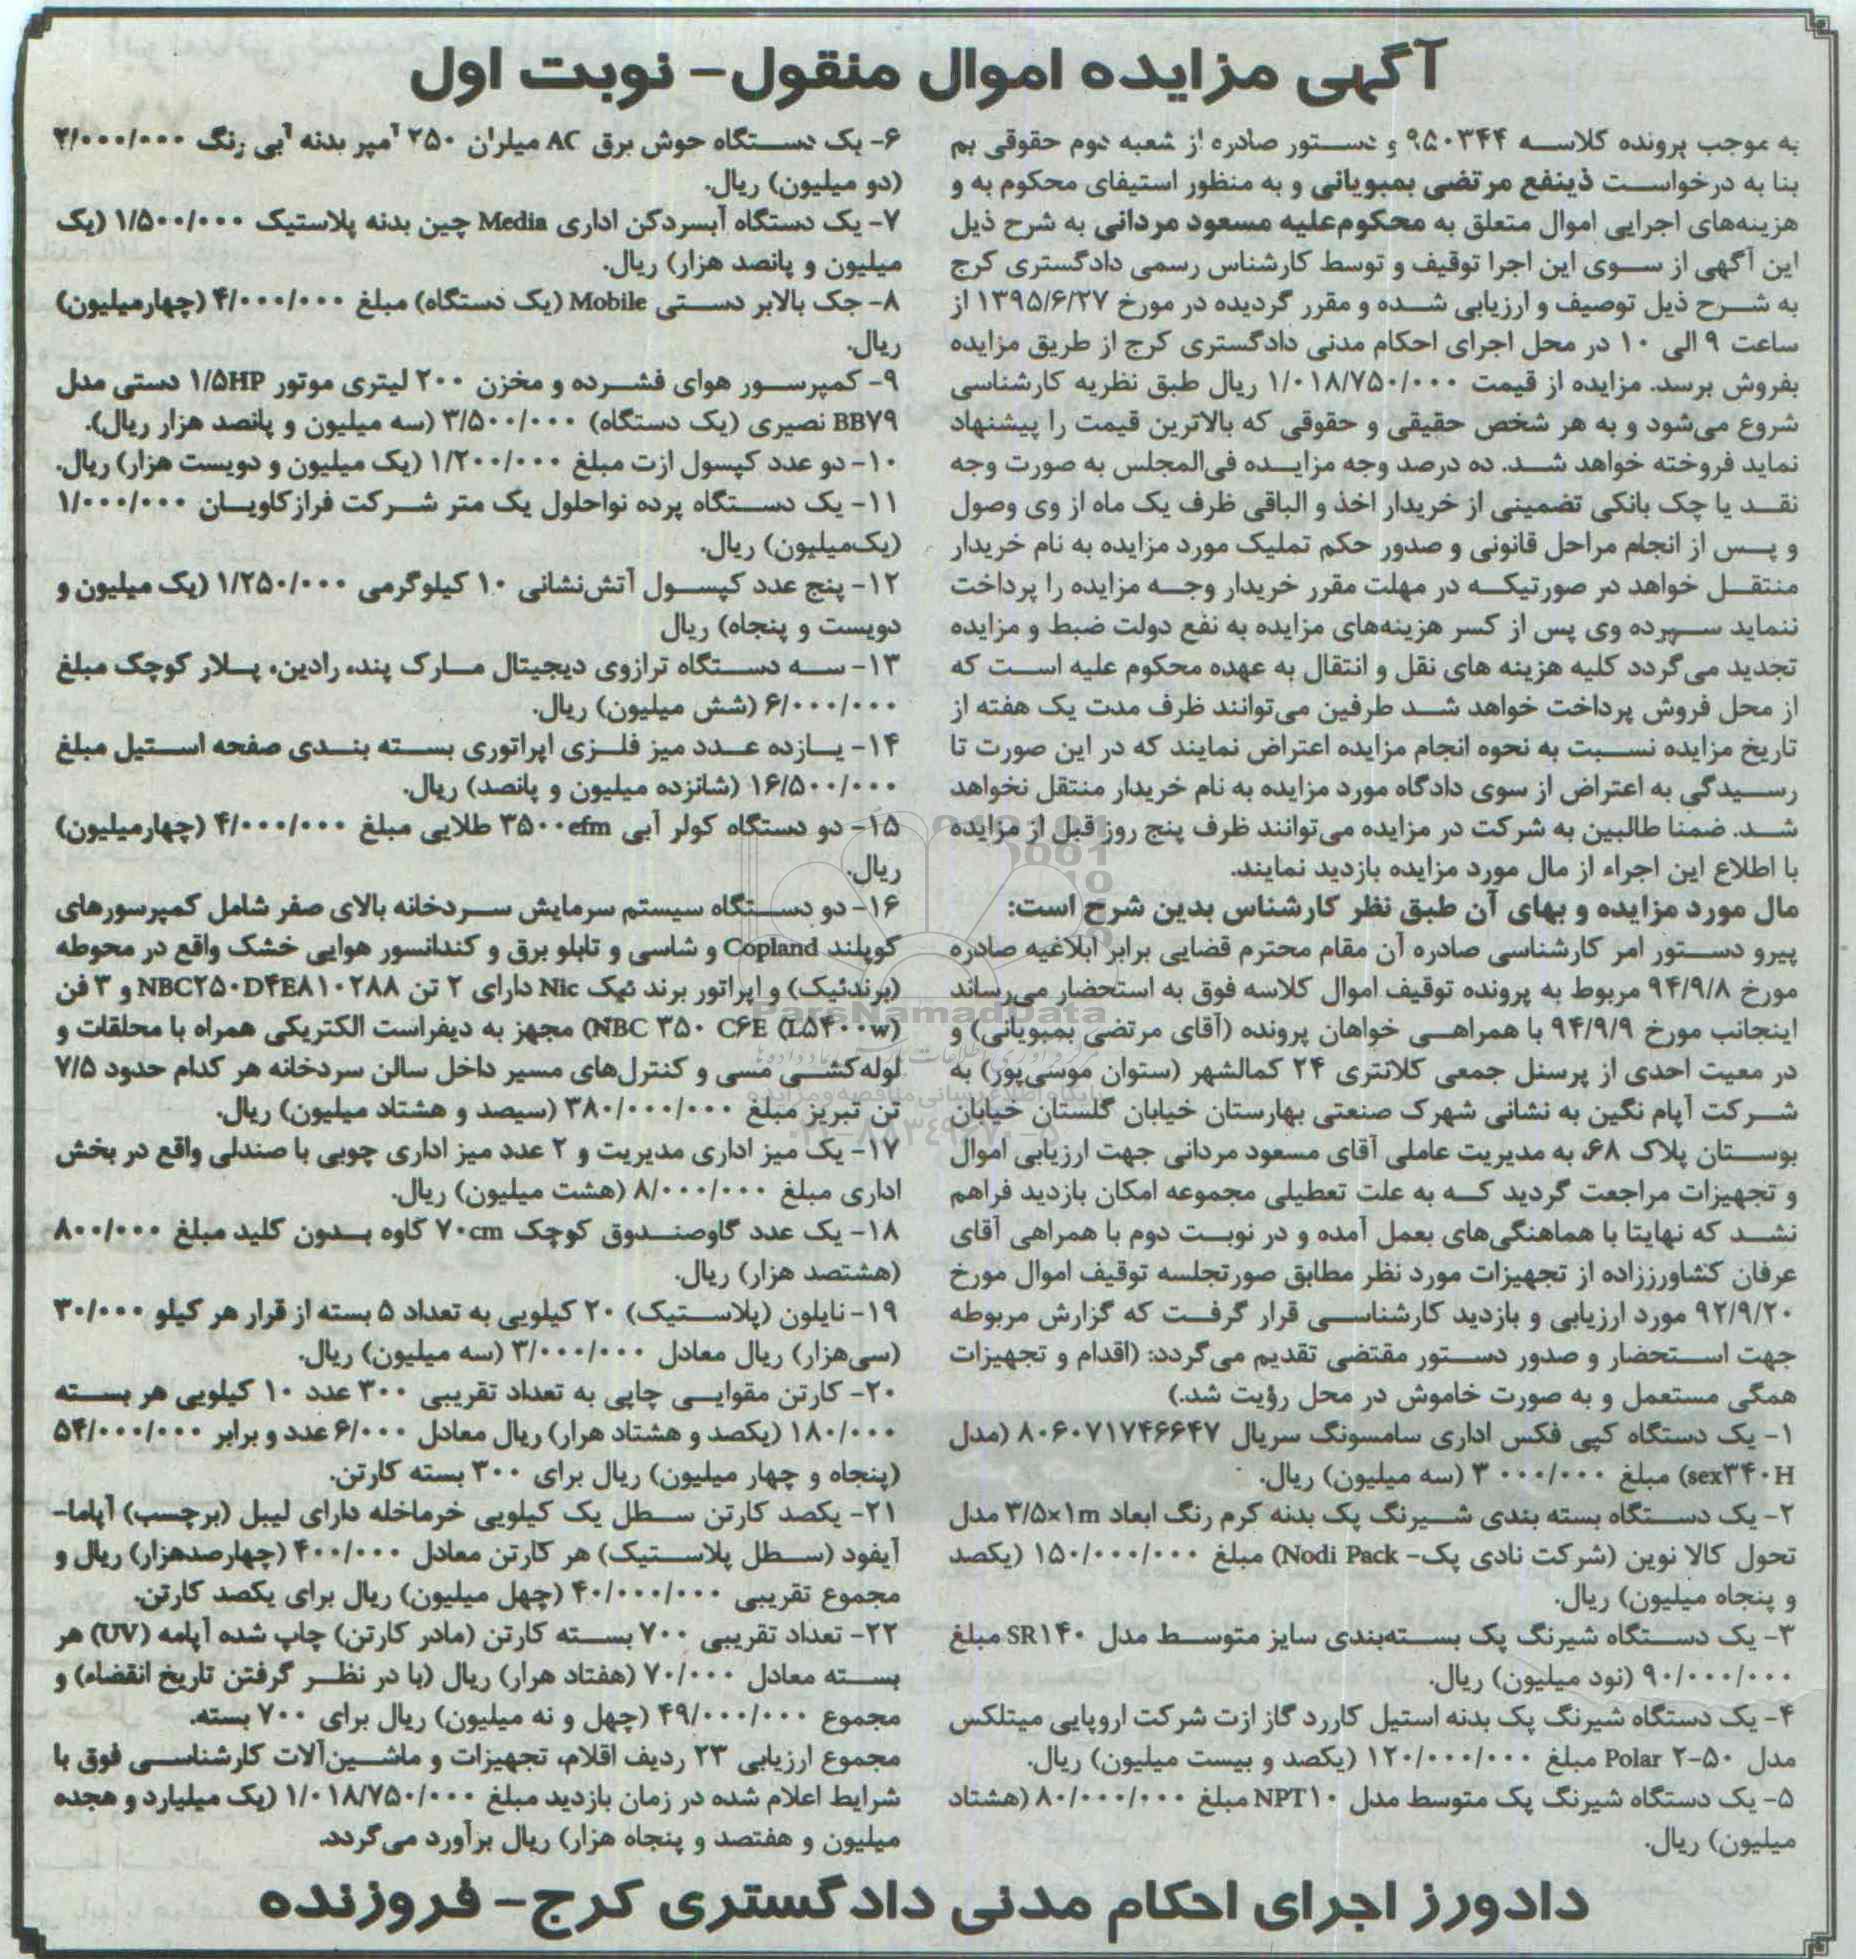 آگهی مزایده اموال منقول- نوبت اول
به موجب پرونده کلاسه ۹۵۰۳۴۴ و دستور صادره از شعبه دوم حقوقی بم
بنا به درخواست ذینفع مرتضی بمبویانی و به منظور استیفای محکوم به و
هزینه‌های اجرایی اموال متعلق به محکوم‌علیه مسعود مردانی به شرح ذیل
این آگهی از سوی این اجرا توقیف و توسط کارشناس رسمی دادگستری کرج
به شرح ذیل توصیف و ارزیابی شده و مقرر گردیده در مورخ ۱۳۹۵/۶/۲۷ از
ساعت ۹ الی ۱۰ در محل اجرای احکام مدنی دادگستری کرج از طریق مزایده
بفروش برسد. مزایده از قیمت ۱/۰۱۸/۷۵۰/۰۰۰ ریال طبق نظریه کارشناسی
شروع می‌شود و به هر شخص حقیقی و حقوقی که بالاترین قیمت را پیشنهاد
نماید فروخته خواهد شد. ده درصد وجه مزایده فی‌المجلس به صورت وجه
نقد یا چک بانکی تضمینی از خریدار اخذ و الباقی ظرف یک ماه از وی وصول
و پس از انجام مراحل قانونی و صدور حکم تملیک مورد مزایده به نام خریدار
منتقل خواهد در صورتیکه در مهلت مقرر خریدار وجه مزایده را پرداخت
ننماید سپرده وی پس از کسر هزینه‌های مزایده به نفع دولت ضبط و مزایده
تجدید می‌گردد کلیه هزینه های نقل و انتقال به عهده محکوم علیه است که
از محل فروش پرداخت خواهد شد طرفین می‌توانند ظرف مدت یک هفته از
تاریخ مزایده نسبت به نحوه انجام مزایده اعتراض نمایند که در این صورت تا
رسیدگی به اعتراض از سوی دادگاه مورد مزایده به نام خریدار منتقل نخواهد
شد. ضمنا طالبین به شرکت در مزایده می‌توانند ظرف پنج روز قبل از مزایده
با اطلاع این اجراء از مال مورد مزایده بازدید نمایند.
مال مورد مزایده و بهای آن طبق نظر کارشناس بدین شرح است:
پیرو دستور امر کارشناسی صادره آن مقام محترم قضایی برابر ابلاغیه صادره
مورخ ۹۴/۹/۸ مربوط به پرونده توقیف اموال کلاسه فوق به استحضار می‌رساند
اینجانب مورخ ۹۴/۹/۹ با همراهی خواهان پرونده (آقای مرتضی بمبویانی) و
در معیت احدی از پرسنل جمعی کلانتری ۲۴ کمالشهر (ستوان موسی‌پور) به
شرکت آپام نگین به نشانی شهرک صنعتی بهارستان خیابان گلستان خیابان
بوستان پلاک ۶۸، به مدیریت عاملی آقای مسعود مردانی جهت ارزیابی اموال
و تجهیزات مراجعت گردید که به علت تعطیلی مجموعه امکان بازدید فراهم
نشد که نهایتا با هماهنگی‌های بعمل آمده و در نوبت دوم با همراهی آقای
عرفان کشاورززاده از تجهیزات مورد نظر مطابق صورتجلسه توقیف اموال مورخ
۹۲/۹/۲۰ مورد ارزیابی و بازدید کارشناسی قرار گرفت که گزارش مربوطه
جهت استحضار و صدور دستور مقتضی تقدیم می‌گردد: (اقدام و تجهیزات
همگی مستعمل و به صورت خاموش در محل رؤیت شد.)
۱- یک دستگاه کپی فکس اداری سامسونگ سریال ۸۰۶۰۷۱۷۴۶۶۴۷ (مدل
sex۳۴۰H) مبلغ ۳ ۰۰۰/۰۰۰ (سه میلیون) ریال.
۲- یک دستگاه بسته بندی شیرنگ پک بدنه کرم رنگ ابعاد ۳/۵×۱m مدل
تحول کالا نوین (شرکت نادی پک- Nodi Pack) مبلغ ۱۵۰/۰۰۰/۰۰۰ (یکصد
و پنجاه میلیون) ریال.
۳- یک دستگاه شیرنگ پک بسته‌بندی سایز متوسط مدل SR۱۴۰ مبلغ
۹۰/۰۰۰/۰۰۰ (نود میلیون) ریال.
۴- یک دستگاه شیرنگ پک بدنه استیل کاررد گاز ازت شرکت اروپایی میتلکس
مدل Polar ۲-۵۰ مبلغ ۱۲۰/۰۰۰/۰۰۰ (یکصد و بیست میلیون) ریال.
۵- یک دستگاه شیرنگ پک متوسط مدل NPT۱۰ مبلغ ۸۰/۰۰۰/۰۰۰ (هشتاد
میلیون) ریال.
۶- یک دستگاه جوش برق AC میلران ۲۵۰ آمپر بدنه آبی رنگ ۲/۰۰۰/۰۰۰
(دو میلیون) ریال.
۷- یک دستگاه آبسردکن اداری Media چین بدنه پلاستیک ۱/۵۰۰/۰۰۰ (یک
میلیون و پانصد هزار) ریال.
۸- جک بالابر دستی Mobile (یک دستگاه) مبلغ ۴/۰۰۰/۰۰۰ (چهارمیلیون)
ریال.
۹- کمپرسور هوای فشرده و مخزن ۲۰۰ لیتری موتور ۱/۵HP دستی مدل
BB۷۹ نصیری (یک دستگاه) ۳/۵۰۰/۰۰۰ (سه میلیون و پانصد هزار ریال).
۱۰- دو عدد کپسول ازت مبلغ ۱/۲۰۰/۰۰۰ (یک میلیون و دویست هزار) ریال.
۱۱- یک دستگاه پرده نواحلول یک متر شرکت فرازکاویان ۱/۰۰۰/۰۰۰
(یک‌میلیون) ریال.
۱۲- پنج عدد کپسول آتش‌نشانی ۱۰ کیلوگرمی ۱/۲۵۰/۰۰۰ (یک میلیون و
دویست و پنجاه) ریال
۱۳- سه دستگاه ترازوی دیجیتال مارک پند، رادین، پلار کوچک مبلغ
۶/۰۰۰/۰۰۰ (شش میلیون) ریال.
۱۴- یازده عدد میز فلزی اپراتوری بسته بندی صفحه استیل مبلغ
۱۶/۵۰۰/۰۰۰ (شانزده میلیون و پانصد) ریال.
۱۵- دو دستگاه کولر آبی ۳۵۰۰efm طلایی مبلغ ۴/۰۰۰/۰۰۰ (چهارمیلیون)
ریال.
۱۶- دو دستگاه سیستم سرمایش سردخانه بالای صفر شامل کمپرسورهای
کوپلند Copland و شاسی و تابلو برق و کندانسور هوایی خشک واقع در محوطه
(برندنیک) و اپراتور برند نیک Nic دارای ۲ تن NBC۲۵۰D۴E۸۱۰۲۸۸ و ۳ فن
(NBC ۳۵۰ C۶E (L۵۴۰۰w مجهز به دیفراست الکتریکی همراه با محلقات و
لوله‌کشی مسی و کنترل‌های مسیر داخل سالن سردخانه هر کدام حدود ۷/۵
تن تبریز مبلغ ۳۸۰/۰۰۰/۰۰۰ (سیصد و هشتاد میلیون) ریال.
۱۷- یک میز اداری مدیریت و ۲ عدد میز اداری چوبی با صندلی واقع در بخش
اداری مبلغ ۸/۰۰۰/۰۰۰ (هشت میلیون) ریال.
۱۸- یک عدد گاوصندوق کوچک ۷۰cm کاوه بدون کلید مبلغ ۸۰۰/۰۰۰
(هشتصد هزار) ریال.
۱۹- نایلون (پلاستیک) ۲۰ کیلویی به تعداد ۵ بسته از قرار هر کیلو ۳۰/۰۰۰
(سی‌هزار) ریال معادل ۳/۰۰۰/۰۰۰ (سه میلیون) ریال.
۲۰- کارتن مقوایی چاپی به تعداد تقریبی ۳۰۰ عدد ۱۰ کیلویی هر بسته
۱۸۰/۰۰۰ (یکصد و هشتاد هرار) ریال معادل ۶/۰۰۰ عدد و برابر ۵۴/۰۰۰/۰۰۰
(پنجاه و چهار میلیون) ریال برای ۳۰۰ بسته کارتن.
۲۱- یکصد کارتن سطل یک کیلویی خرماخله دارای لیبل (برچسب) آپاما-
آیفود (سطل پلاستیک) هر کارتن معادل ۴۰۰/۰۰۰ (چهارصدهزار) ریال و
مجموع تقریبی ۴۰/۰۰۰/۰۰۰ (چهل میلیون) ریال برای یکصد کارتن.
۲۲- تعداد تقریبی ۷۰۰ بسته کارتن (مادر کارتن) چاپ شده آپامه (UV) هر
بسته معادل ۷۰/۰۰۰ (هفتاد هرار) ریال (با در نظر گرفتن تاریخ انقضاء) و
مجموع ۴۹/۰۰۰/۰۰۰ (چهل و نه میلیون) ریال برای ۷۰۰ بسته.
مجموع ارزیابی ۲۳ ردیف اقلام، تجهیزات و ماشین‌آلات کارشناسی فوق با
شرایط اعلام شده در زمان بازدید مبلغ ۱/۰۱۸/۷۵۰/۰۰۰ (یک میلیارد و هجده
میلیون و هفتصد و پنجاه هزار) ریال برآورد می‌گردد.
دادورز اجرای احکام مدنی دادگستری کرج- فروزنده
ParsNamadData